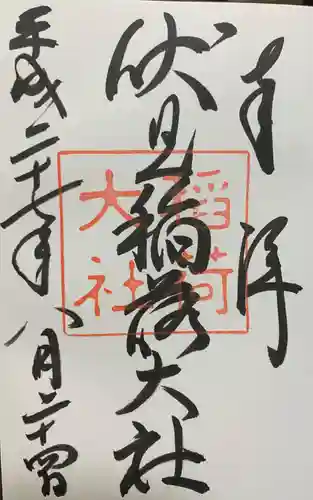 奉拝
伏見稲荷大社
稲荷
大社
平成二十七年八月二十四日